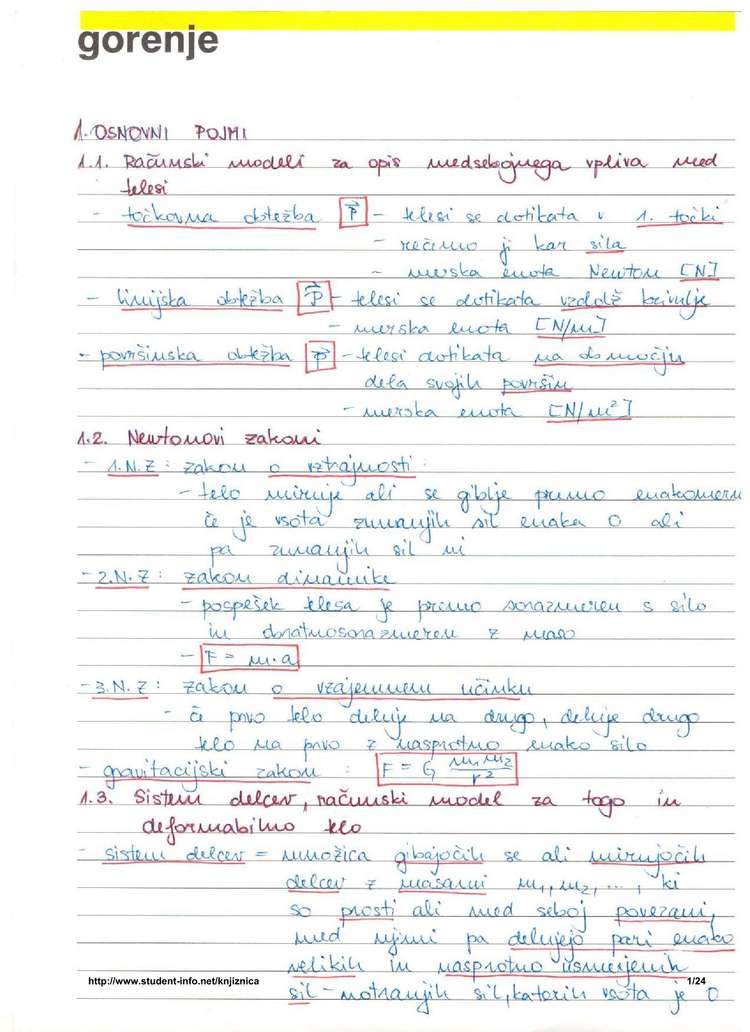 gorenje
1. OSNOVNI POJMI
1.1. Računski modeli za opis medsebojnega vpliva med
telesi
- točkovna obtežba P⃗ - telesi se dotikata v 1. točki
- rečimo ji kar sila
- merska enota Newton [N]
- linijska obtežba P⃗ - telesi se dotikata vzdolž krivulje
- merska enota [N/m]
- površinska obtežba p⃗ - telesi dotikata na območju
dela svojih površin
- merska enota [N/m²]
1.2. Newtonovi zakoni
- 1.N.Z: zakon o vztrajnosti:
- telo miruje ali se giblje premo enakomern
če je vsota zunanjih sil enaka 0 ali
pa zunanjih sil ni
- 2.N.Z: zakon dinamike
- pospešek telesa je premo sorazmeren s silo
in obratnosorazmeren z maso
- F = m·a
- 3.N.Z: zakon o vzajemnem učinku
- če prvo telo deluje na drugo, deluje drugo
telo na prvo z nasprotno enako silo
- gravitacijski zakon : F = G m₁m₂/r²
1.3. Sistem delcev, računski model za togo in
deformabilno telo
- sistem delcev = množica gibajočih se ali mirujočih
delcev z masami m₁, m₂, ..., ki
so prosti ali med seboj povezani,
med njimi pa delujejo pari enako
velikih in nasprotno usmerjenih
sil - notranjih sil, katerih vsota je 0
http://www.student-info.net/knjiznica
1/24